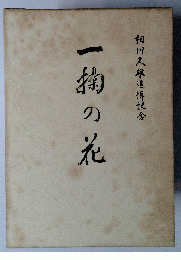 相川久雄追悼記念
一掬の花